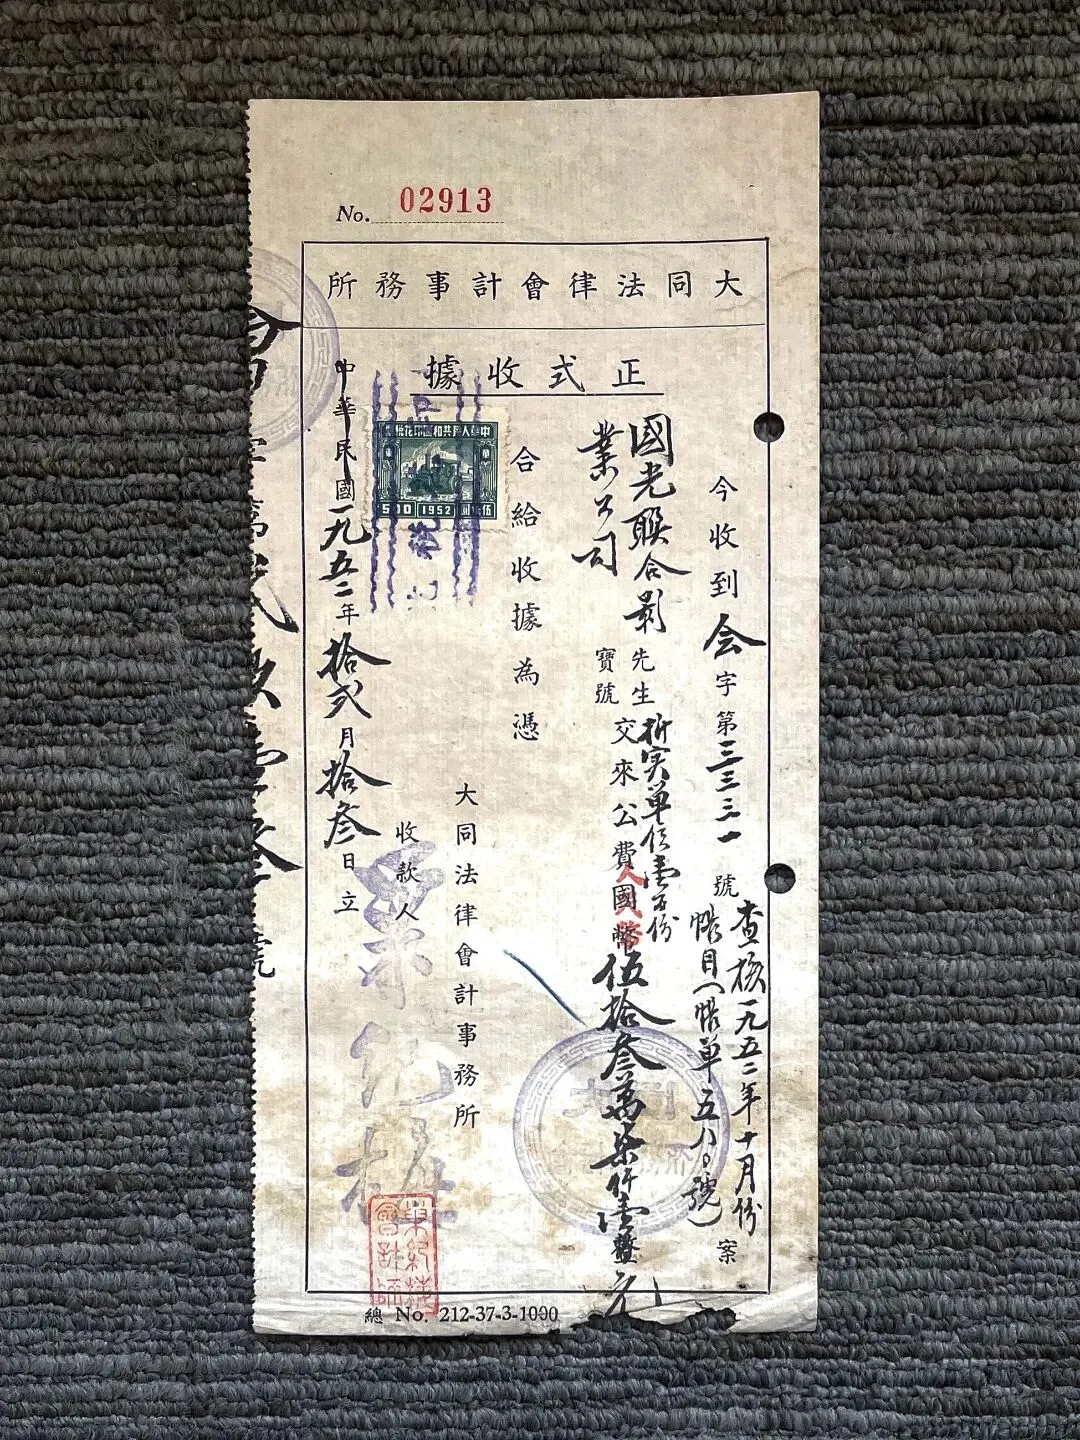 No. 02913
大同法律會計事務所
正式收據
今收到会字第三三三一號查核一九五二年十月份
帳目(帳單五八〇號)案
國光聯合影
業公司
先生
寶號
折实单位壹百份
交來公費人民幣國幣伍拾叄萬柒仟壹整元
合給收據為憑
中華人民共和國印花稅票
500 1952 伍佰圓
大同法律會計事務所
收款人
葉紀梅
葉紀梅
會計師
中華民國一九五二年拾弍月拾叄日立
總 No. 212-37-3-1000